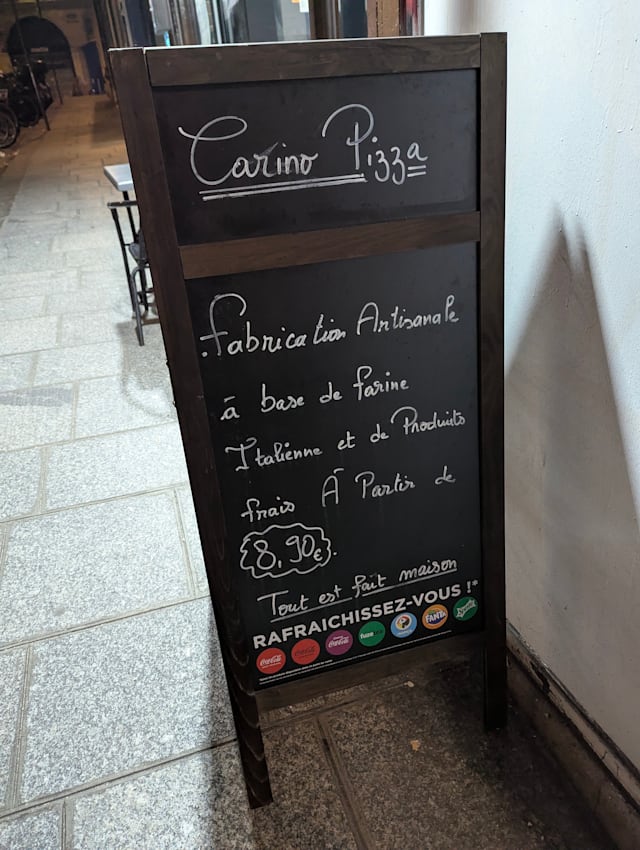 Carino Pizza
. Fabrication Artisanale
à base de farine
Italienne et de Produits
frais À Partir de
8,90€.
Tout est fait maison
RAFRAICHISSEZ-VOUS !*
Coca-Cola Coca-Cola Coca-Cola fuzetea FANTA Sprite